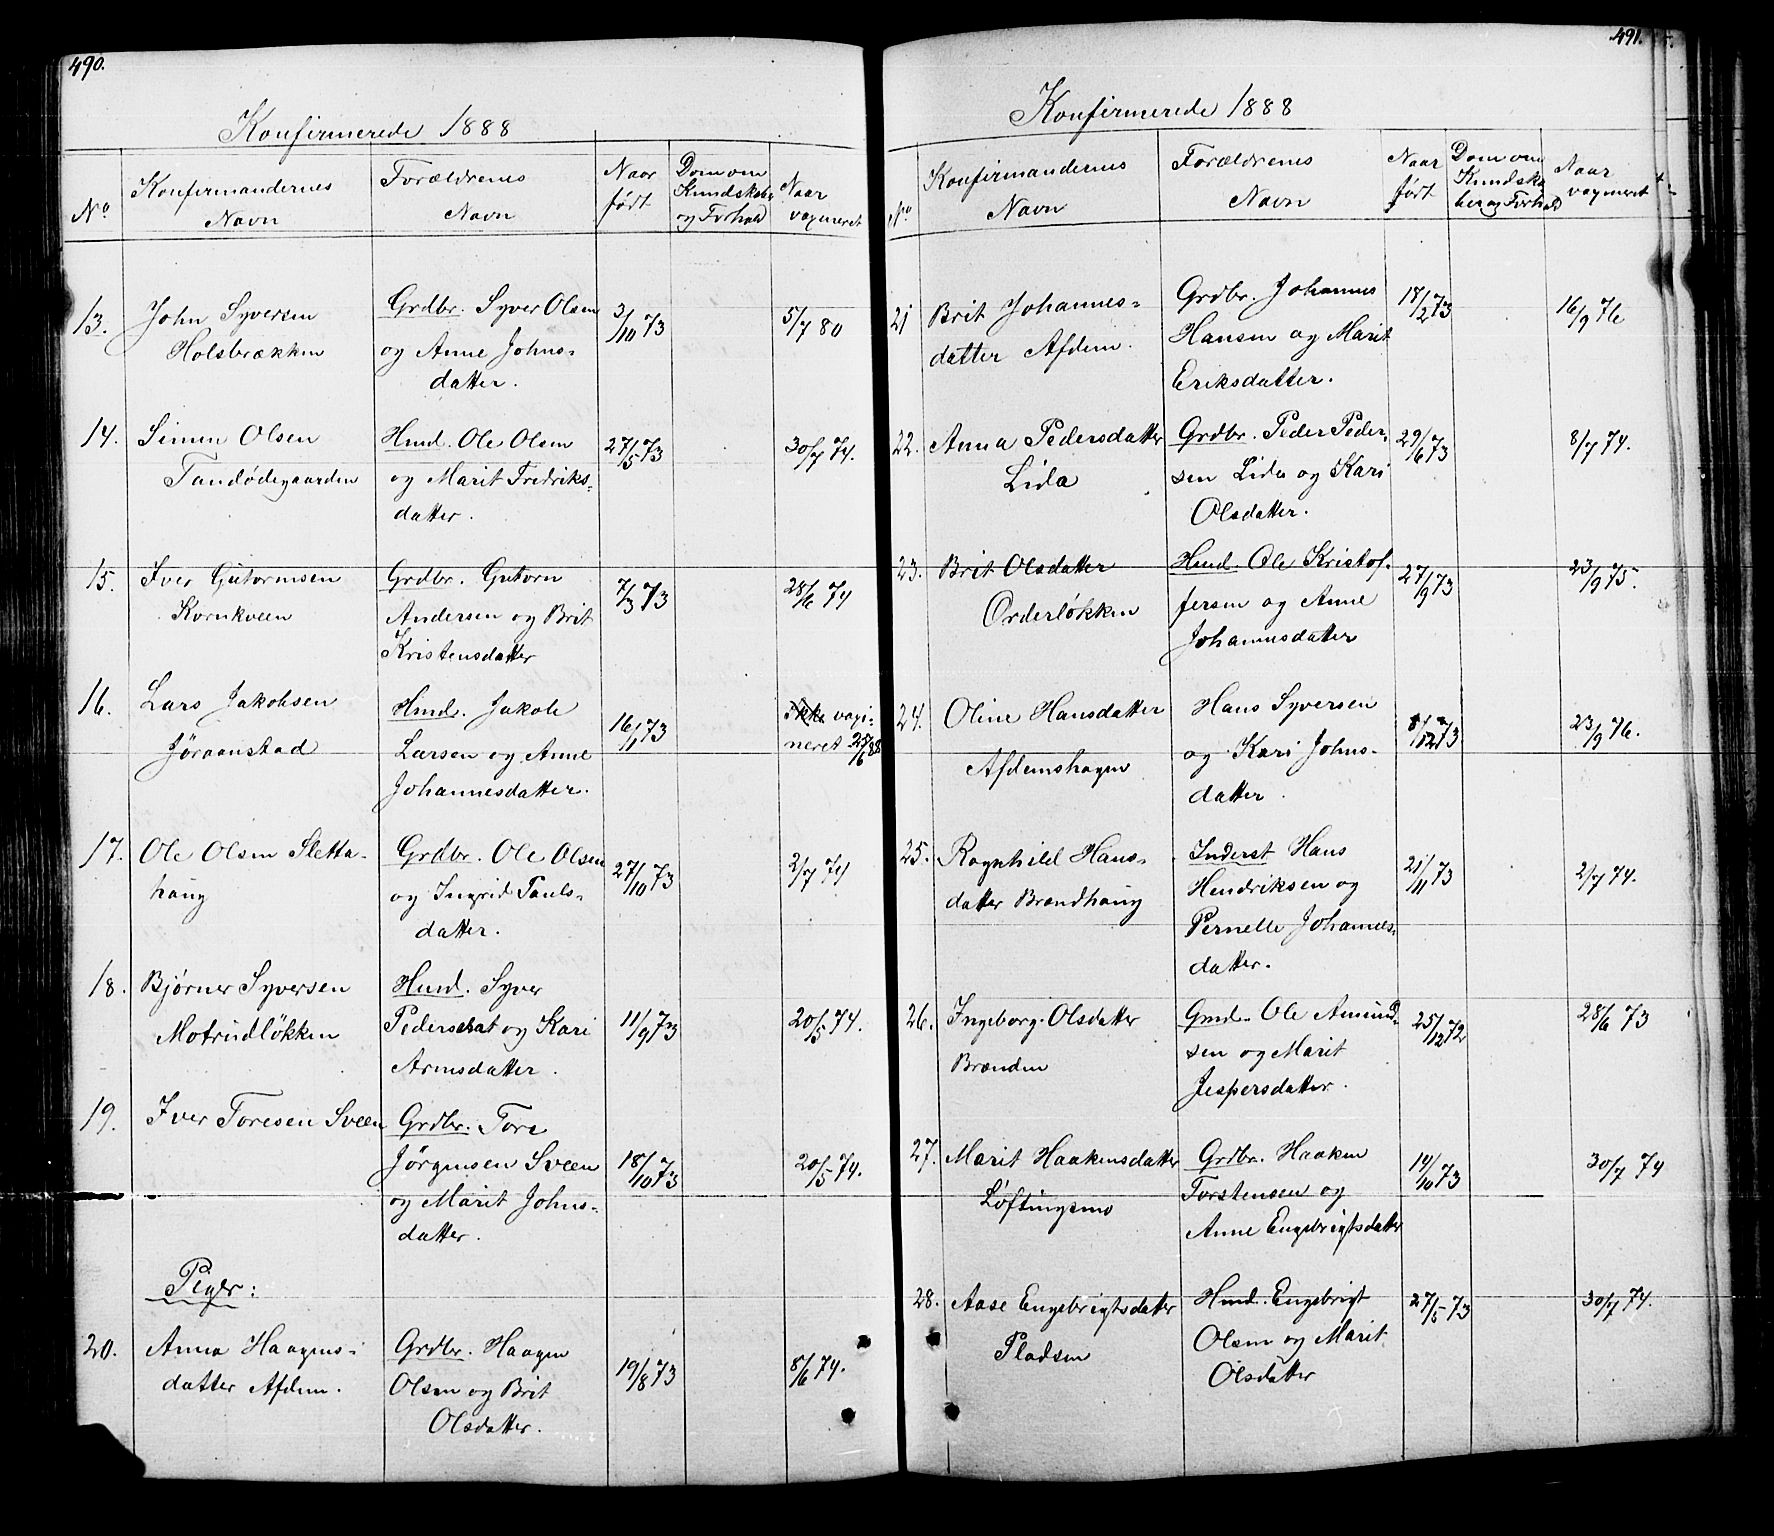 490.
Konfirmerede 1888
No
Konfirmandernes
Navn
Forældrenes
Navn
Naar
født
Dom om
Kundskaber
og Forhold
Naar
vaxineret
13. John Syversen
Holsbrækken
Grdbr. Syver Olsen
og Anne Johns-
datter.
3/10 73
5/7 80
14. Simen Olsen
Tandødegaarden
Hmd. Ole Olsen
og Marit Fredriks-
datter.
27/5 73
30/7 74.
15. Iver Gutormsen
Kornkveen
Grdbr. Gutorn
Andersen og Brit
Kristensdatter
7/3 73
28/6 74
16. Lars Jakobsen
Jøraanstad
Hmd. Jakob
Larsen og Anne
Johannesdatter.
16/1 73
Ikke vaxi-
neret 25/6 88
17. Ole Olsen Sletta-
haug
Grdbr. Ole Olsen
og Ingrid Pauls-
datter.
27/10 73
2/7 74
18. Bjørner Syversen
Motrudløkken
Hmd. Syver
Pedersen og Kari
Arnesdatter.
11/9 73
20/5 74.
19. Iver Toresen Sveen
Grdbr. Tore
Jørgensen Sveen
og Marit Johns-
datter.
18/10 73
20/5 74.
Piger:
20. Anna Haagens-
datter Afdem.
Grdbr. Haagen
Olsen og Brit
Olsdatter.
19/8 73
8/6 74.
491.
Konfirmerede 1888
No
Konfirmandernes
Navn
Forældrenes
Navn
Naar
født
Dom om
Kundska
ber og Forhold
Naar
vaxineret
21 Brit Johannes-
datter Afdem.
Grdbr. Johannes
Hansen og Marit
Eriksdatter.
18/2 73
16/9 76
22. Anna Pedersdatter
Lida
Grdbr. Peder Peder-
sen Lida og Kari
Olsdatter.
29/6 73
8/7 74.
23. Brit Olsdatter
Orderløkken
Hmd. Ole Kristof-
fersen og Anne
Johannesdatter
27/9 73
23/9 75.
24. Oline Hansdatter
Afdemshagen
Hans Syversen
og Kari Johns-
datter.
8/12 73
23/9 76.
25. Ragnhild Hans-
datter Brændhaug
Inderst Hans
Hendriksen og
Pernelle Johannes-
datter.
21/11 73
2/7 74.
26. Ingeborg Olsdatter
Brænden
Gmd. Ole Amund-
sen og Marit
Jespersdatter.
25/12 72
28/6 73
27. Marit Haakensdatter
Løftingsmo
Grdbr. Haaken
Torstensen og
Anne Engebrigtsdatter
14/10 73
30/7 74
28. Aase Engebrigtsdatter
Pladsen
Hmd. Engebrigt
Olsen og Marit
Olsdatter
27/5 73
30/7 74.